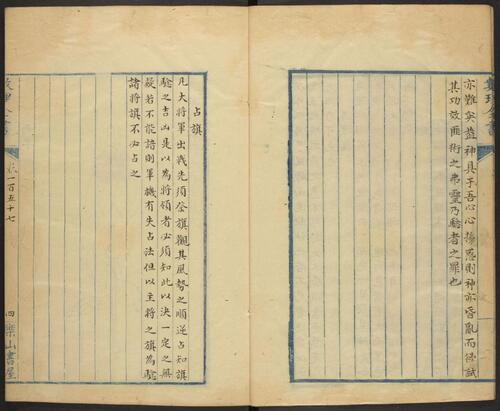 亦難矣蓋神具于吾心心擾惑則神亦昏亂而
其功效匪術之弗靈乃驗者之罪也
占旗
凡大將軍出戎先須祭旗觀其風勢之順逆占知旗
驗之吉凶是以為將領者必須知此以決一定之無
疑若不能諳則軍機有失占法但以主將之旗為驗
諸將旗不必占之
卷一百五十七
四
樂山書屋